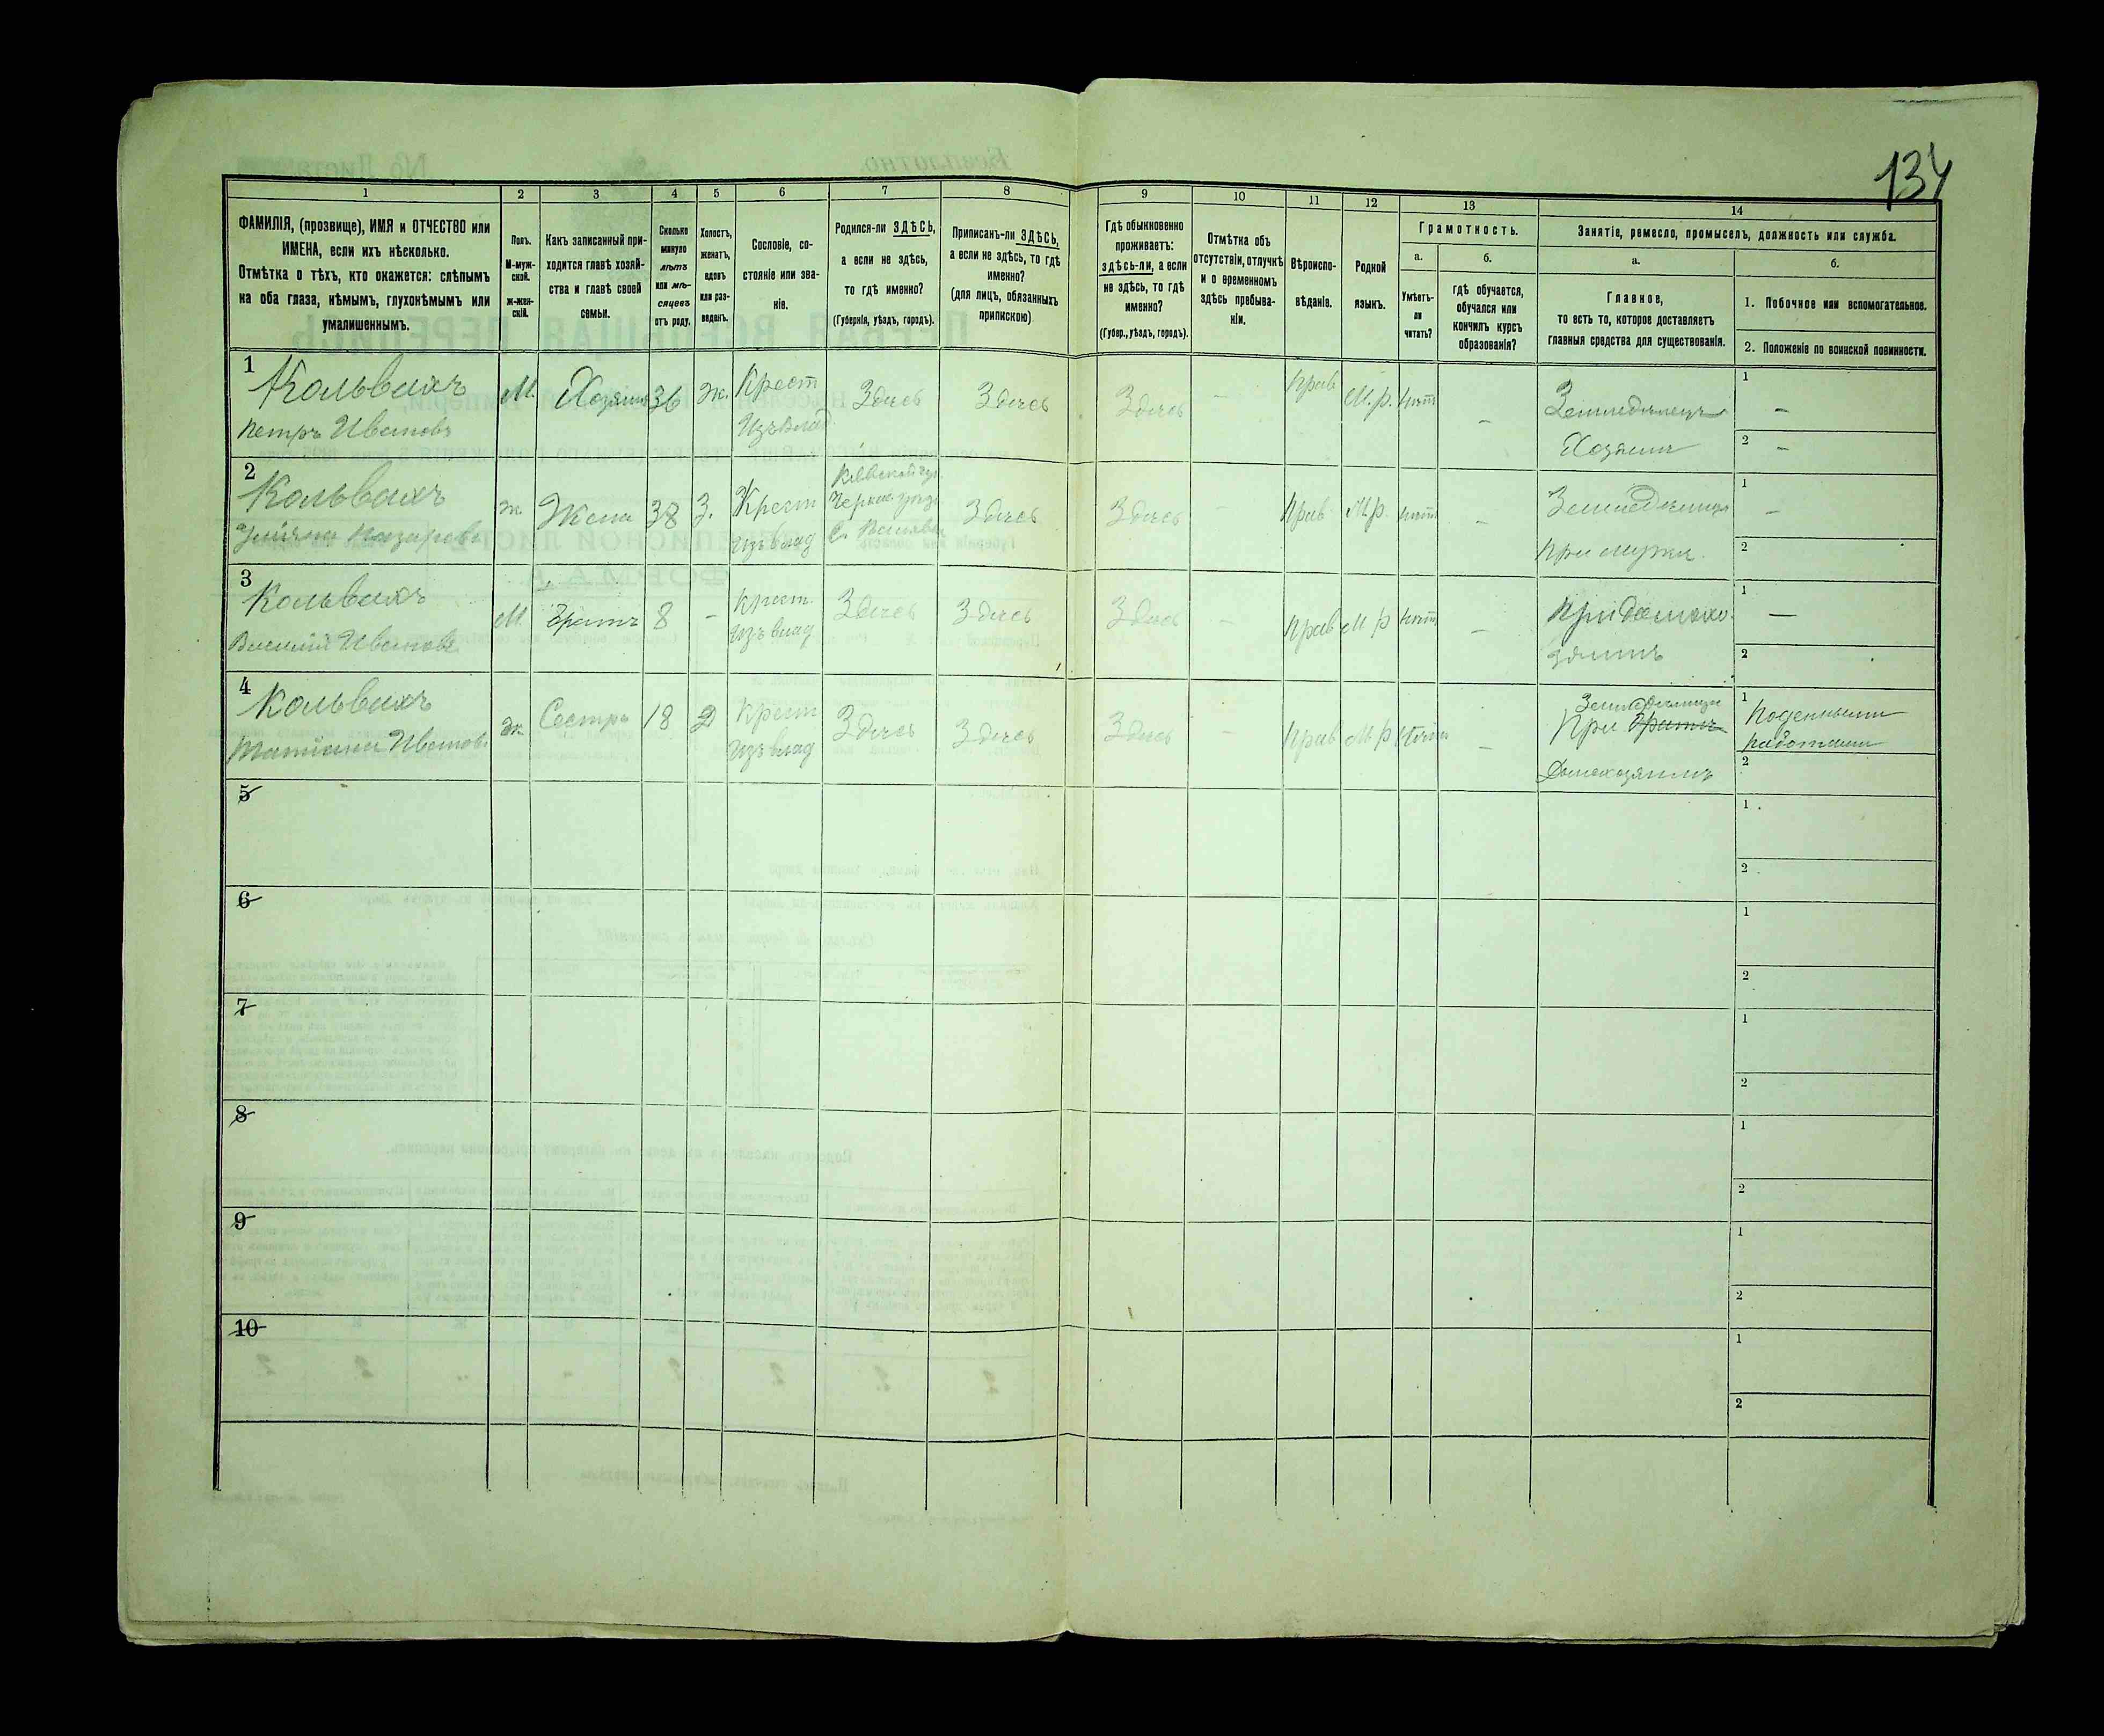 134
1 2 3 4 5 6 7 8 9 10 11 12 13 14
ФАМИЛІЯ, (прозвище), ИМЯ и ОТЧЕСТВО или
ИМЕНА, если ихъ нѣсколько.
Отмѣтка о тѣхъ, кто окажется: слѣпымъ
на оба глаза, нѣмымъ, глухонѣмымъ или
умалишеннымъ.
Полъ.
М-муж-
ской.
ж-жен-
скій.
Какъ записанный при-
ходится главѣ хозяй-
ства и главѣ своей
семьи.
Сколько
минуло
лѣтъ
или мѣ-
сяцевъ
отъ роду.
Холостъ,
женатъ,
вдовъ
или раз-
веденъ.
Сословіе, со-
стояніе или зва-
ніе.
Родился-ли ЗДѢСЬ,
а если не здѣсь,
то гдѣ именно?
(Губернія, уѣздъ, городъ).
Приписанъ-ли ЗДѢСЬ,
а если не здѣсь, то гдѣ
именно?
(для лицъ, обязанныхъ
припискою)
Гдѣ обыкновенно
проживаетъ:
здѣсь-ли, а если
не здѣсь, то гдѣ
именно?
(Губер., уѣздъ, городъ).
Отмѣтка объ
отсутствіи, отлучкѣ
и о временномъ
здѣсь пребыва-
ніи.
Вѣроиспо-
вѣданіе.
Родной
языкъ.
Грамотность.
а.
Умѣетъ-
ли
читать?
б.
гдѣ обучается,
обучался или
кончилъ курсъ
образованія?
Занятіе, ремесло, промыселъ, должность или служба.
а.
Главное,
то есть то, которое доставляетъ
главныя средства для существованія.
б.
1. Побочное или вспомогательное.
2. Положеніе по воинской повинности.
1
Кольвахъ М. Хозяинъ 36 Ж. Крест Здесь Здесь Здесь - Прав М.р. нѣтъ - Земледѣлецъ 1 -
Петръ Ивановъ Изъ влад Хозяинъ 2 -
2
Кольвахъ ж. Жена 38 З. Крест Кіевской гу. Здесь Здесь - Прав М р. нѣтъ - 1 -
Назарова Изъ влад С. при мужѣ. 2
3
Кольвахъ М. Братъ 8 - Крест Здесь Здесь Здесь - Прав М р нѣтъ - При домохо- 1 -
Василій Ивановъ Изъ влад зяинѣ 2
4
Кольвахъ ж. Сестра 18 Д Крест Здесь Здесь Здесь - Прав М р Нѣтъ - При братѣ 1 Поденными
Татіана Иванов. Изъ влад Домохозяинѣ работами 2
5 1 2
6 1 2
7 1 2
8 1 2
9 1 2
10 1 2